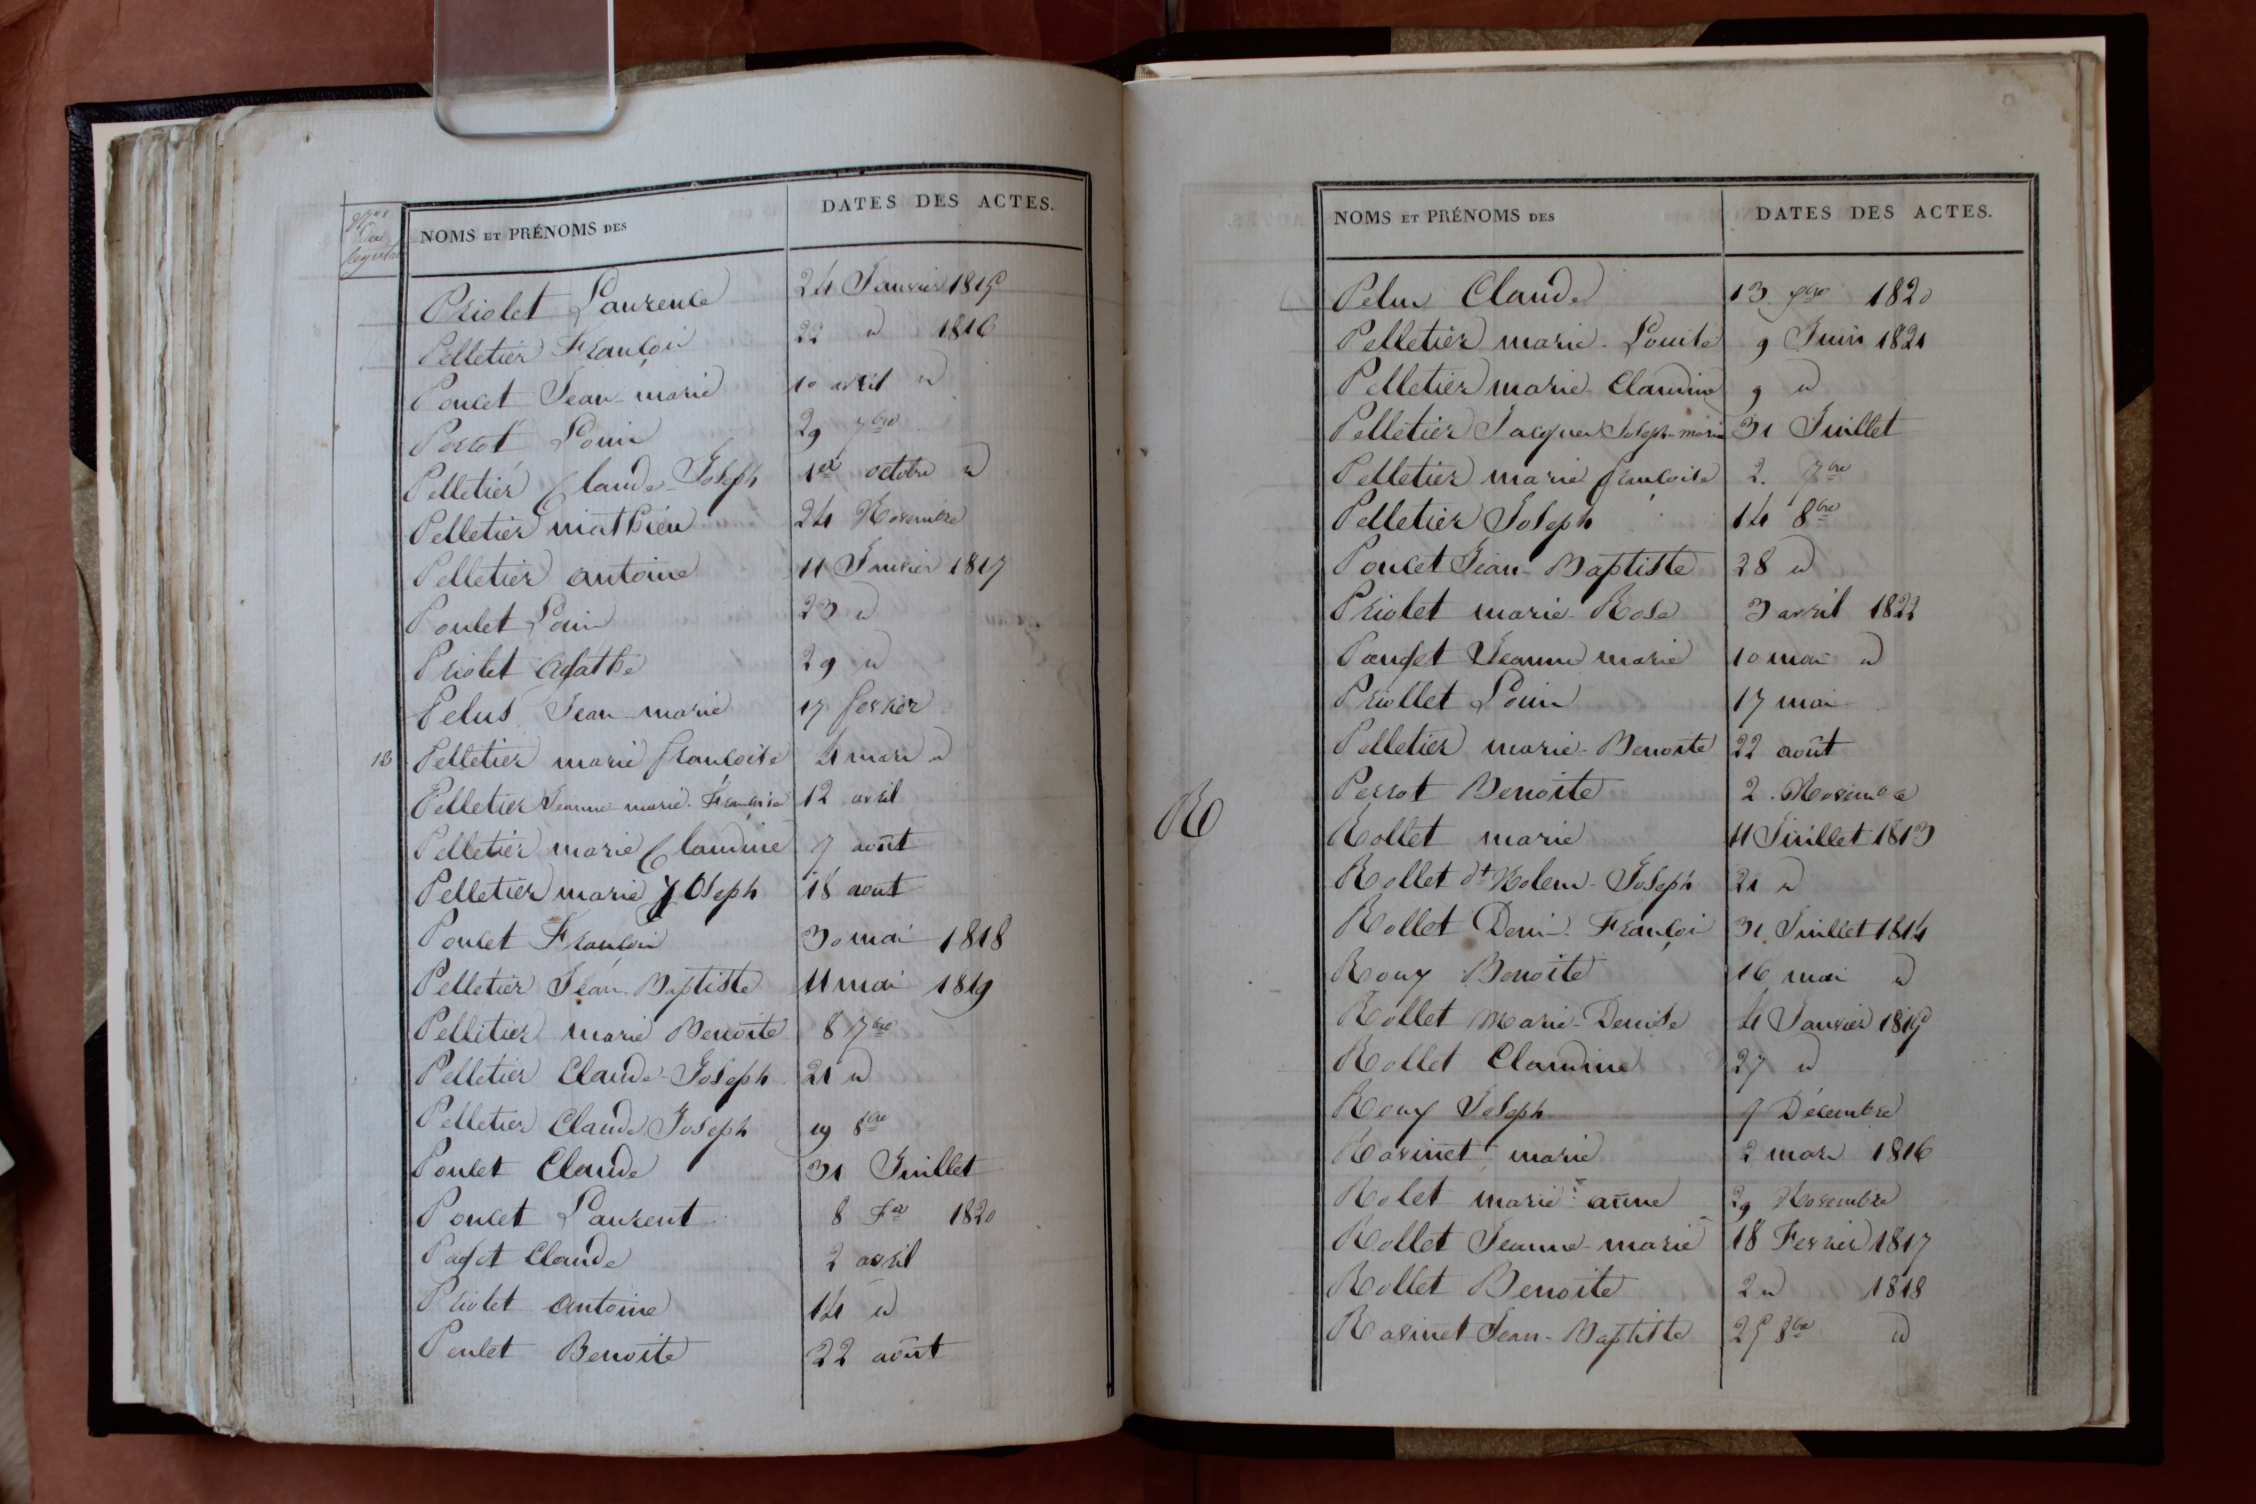 du
NOMS ET PRÉNOMS DES DATES DES ACTES.
Priolet Laurence 24 Janvier 1815
Pelletier François 22 " 1816
Poncet Jean-marie 10 avril "
Perrot Louis 29 7bre
Pelletier Claude-Joseph 1er octobre "
Pelletier mathieu 24 Novembre
Pelletier antoine 11 Janvier 1817
Poncet Louis 23 "
Priolet Agathe 29 "
Pelus Jean-marie 17 fevrier
13 Pelletier marie françoise 4 mars "
Pelletier Jeanne-marie-Françoise 12 avril
Pelletier marie Claudine 7 août
Pelletier marie Joseph 18 aout
Poncet François 30 mai 1818
Pelletier Jean-Baptiste 11 mai 1819
Pelletier marie Benoite 8 7bre
Pelletier Claude-Joseph 21 "
Pelletier Claude Joseph 19 8bre
Poncet Claude 31 Juillet
Poncet Laurent 8 1820
Paget Claude 2 avril
Priolet antoine 14 "
Poncet Benoite 22 août
NOMS ET PRÉNOMS DES DATES DES ACTES.
Pelus Claude 13 1820
Pelletier marie-Louise 9 Juin 1821
Pelletier marie-Claudine 9 "
Pelletier Jacques Joseph-marie 31 Juillet
Pelletier marie françoise 2. 7bre
Pelletier Joseph 14 8bre
Poncet Jean-Baptiste 28 "
Priolet marie-Rose 3 avril 1822
Pauget Jeanne marie 10 mai "
Priollet Louis 17 mai
Pelletier marie-Benoite 22 août
Perrot Benoite 2. Novembre
R
Rollet marie 11 Juillet 1813
Rollet dt Joseph 21 "
Rollet Denis-François 31 Juillet 1814
Rouy Benoite 16 mai "
Rollet Marie-Denise 4 Janvier 1815
Rollet Claudine 27 "
Rouy Joseph 7 Décembre
Ravinet marie 2 mars 1816
Rolet marie anne 29 Novembre
Rollet Jeanne-marie 18 Fevrier 1817
Rollet Benoite 2 " 1818
Ravinet Jean-Baptiste 25 8bre "